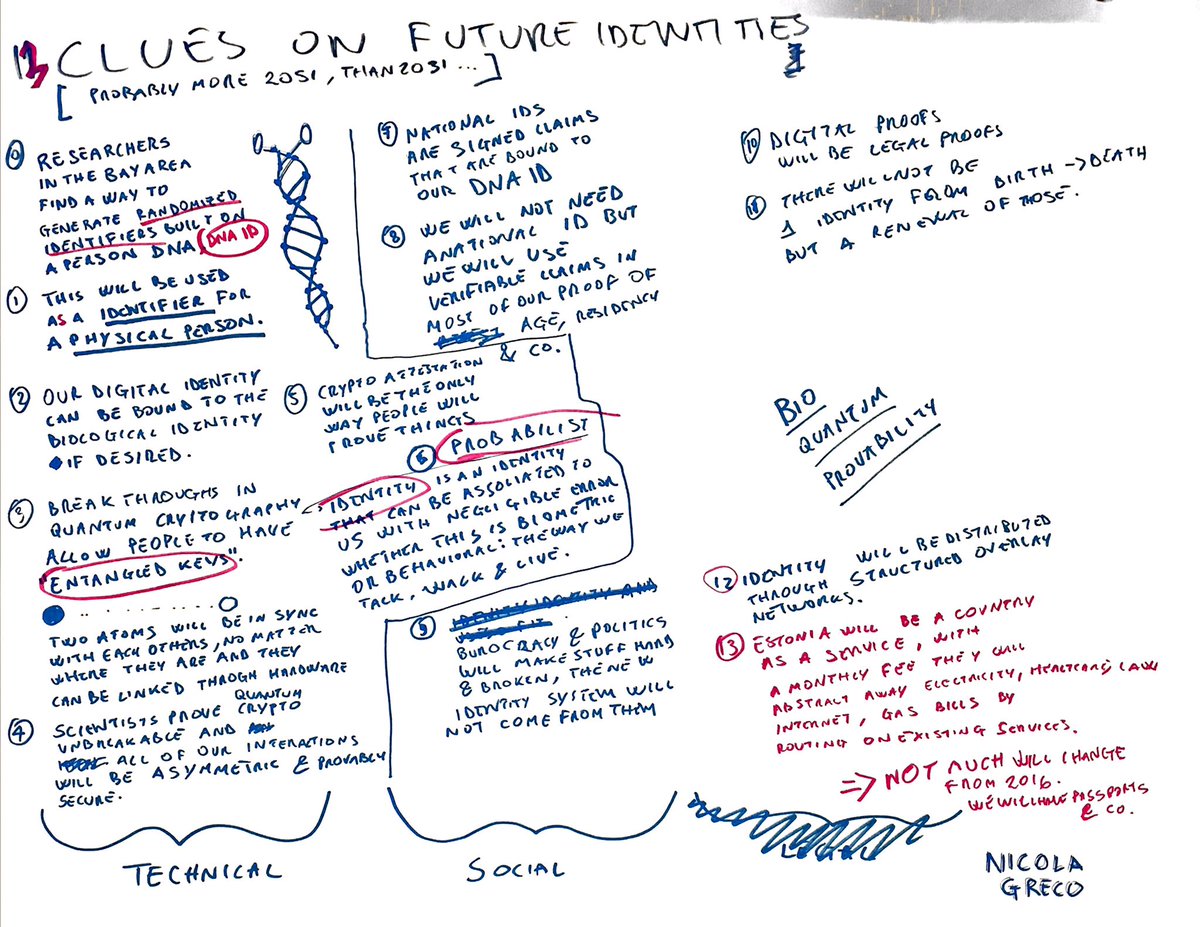 13 CLUES ON FUTURE IDENTITIES
[ PROBABLY MORE 2051, THAN 2031 ... ]
0 RESEARCHERS
IN THE BAY AREA
FIND A WAY TO
GENERATE RANDOMIZED
IDENTIFIERS BUILT ON
A PERSON DNA, DNA ID
1 THIS WILL BE USED
AS A IDENTIFIER FOR
A PHYSICAL PERSON.
2 OUR DIGITAL IDENTITY
CAN BE BOUND TO THE
BIOLOGICAL IDENTITY
IF DESIRED.
3 BREAK THROUGHS IN
QUANTUM CRYPTOGRAPHY
ALLOW PEOPLE TO HAVE
"ENTANGLED KEYS".
TWO ATOMS WILL BE IN SYNC
WITH EACH OTHERS, NO MATTER
WHERE THEY ARE AND THEY
CAN BE LINKED THROUGH HARDWARE
4 SCIENTISTS PROVE QUANTUM CRYPTO
UNBREAKABLE AND
ALL OF OUR INTERACTIONS
WILL BE ASYMMETRIC & PROVABLY
SECURE.
TECHNICAL
9 NATIONAL IDS
ARE SIGNED CLAIMS
THAT ARE BOUND TO
OUR DNA ID
8 WE WILL NOT NEED
A NATIONAL ID BUT
WE WILL USE
VERIFIABLE CLAIMS IN
MOST OF OUR PROOF OF
AGE, RESIDENCY
& CO.
5 CRYPTO ATTESTATION
WILL BE THE ONLY
WAY PEOPLE WILL
PROVE THINGS
6 PROBABILIST
IDENTITY IS AN IDENTITY
THAT CAN BE ASSOCIATED TO
US WITH NEGLIGIBLE ERROR
WHETHER THIS IS BIOMETRIC
OR BEHAVIORAL: THE WAY WE
TALK, WALK & LIVE.
9 BUROCRACY & POLITICS
WILL MAKE STUFF HARD
& BROKEN, THE NEW
IDENTITY SYSTEM WILL
NOT COME FROM THEM
SOCIAL
10 DIGITAL PROOFS
WILL BE LEGAL PROOFS
11 THERE WILL NOT BE
1 IDENTITY FROM BIRTH -> DEATH
BUT A RENEWAL OF THOSE.
BIO
QUANTUM
PROVABILITY
12 IDENTITY WILL BE DISTRIBUTED
THROUGH STRUCTURED OVERLAY
NETWORKS.
13 ESTONIA WILL BE A COUNTRY
AS A SERVICE, WITH
A MONTHLY FEE THEY WILL
ABSTRACT AWAY ELECTRICITY, HEALTCARE, LAW
INTERNET, GAS BILLS BY
ROUTING ON EXISTING SERVICES.
=> NOT MUCH WILL CHANGE
FROM 2016.
WE WILL HAVE PASSPORTS
& CO.
NICOLA
GRECO